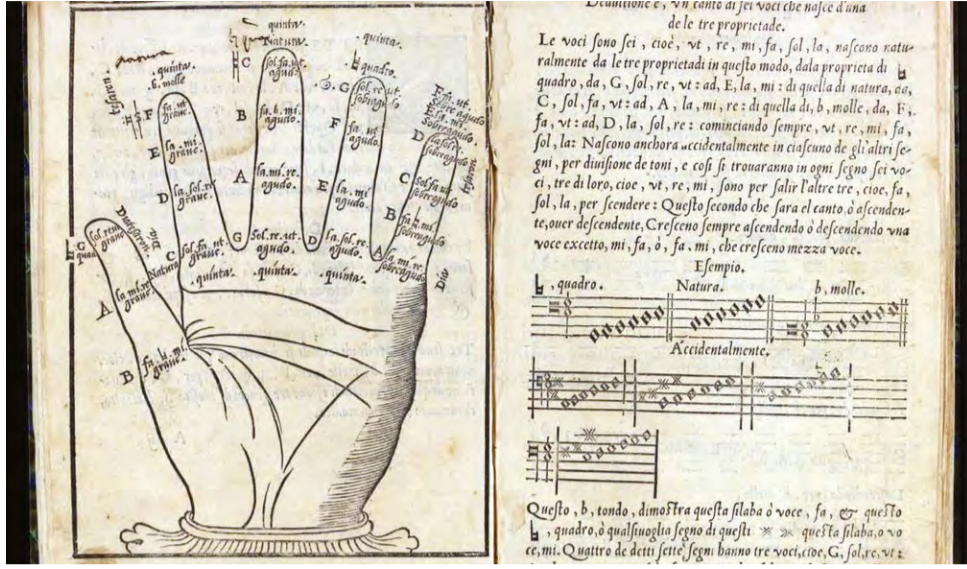 quinta.
Natura.
C
sol.fa.ut.
agud.
quinta.
♮ quadro.
G
sol.re.ut.
quinta.
b.molle
F
fa.ut.
graue.
B
fa.♮.mi.
agudo.
F
fa.ut.
agudo.
D
E
la.mi.
graue.
A
la.mi.re.
agudo.
E
la.mi.
agudo.
C
sol.fa.ut.
D
la.sol.re.
graue.
G
sol.re.ut.
agudo.
D
la.sol.re.
agudo.
B
A
la.mi.re.
C
sol.fa.ut.
graue.
Natura
quinta.
quinta.
quinta.
Dia
G
A
la.mi.re.
graue.
B
fa.♮.mi.
graue.
Deduttione è, vn canto di sei voci che nasce d'una
de le tre proprietade.
Le voci sono sei, cioè, vt, re, mi, fa, sol, la, nascono natu-
ralmente da le tre proprietadi in questo modo, dala proprieta di ♮
quadro, da, G, sol, re, vt: ad, E, la, mi: di quella di natura, da,
C, sol, fa, vt: ad, A, la, mi, re: di quella di, b, molle, da, F,
fa, vt: ad, D, la, sol, re: cominciando sempre, vt, re, mi, fa,
sol, la: Nascono anchora accidentalmente in ciascuno de gli altri se-
gni, per diuisione de toni, e cosi se trouaranno in ogni segno sei vo-
ci, tre di loro, cioe, vt, re, mi, sono per salir l'altre tre, cioe, fa,
sol, la, per scendere: Questo secondo che sara el canto, ò ascenden-
te, ouer descendente, Cresceno sempre ascendendo ò descendendo vna
voce excetto, mi, fa, ò, fa, mi, che cresceno mezza voce.
Esempio.
♮, quadro. Natura. b, molle.
Accidentalmente.
Questo, b, tondo, dimostra questa silaba ò voce, fa, & questo
♮, quadro, ò qualsiuoglia segno di questi ※ ※ questa silaba, o vo
ce, mi. Quattro de detti sette segni hanno tre voci, cioe, G, sol, re, vt: